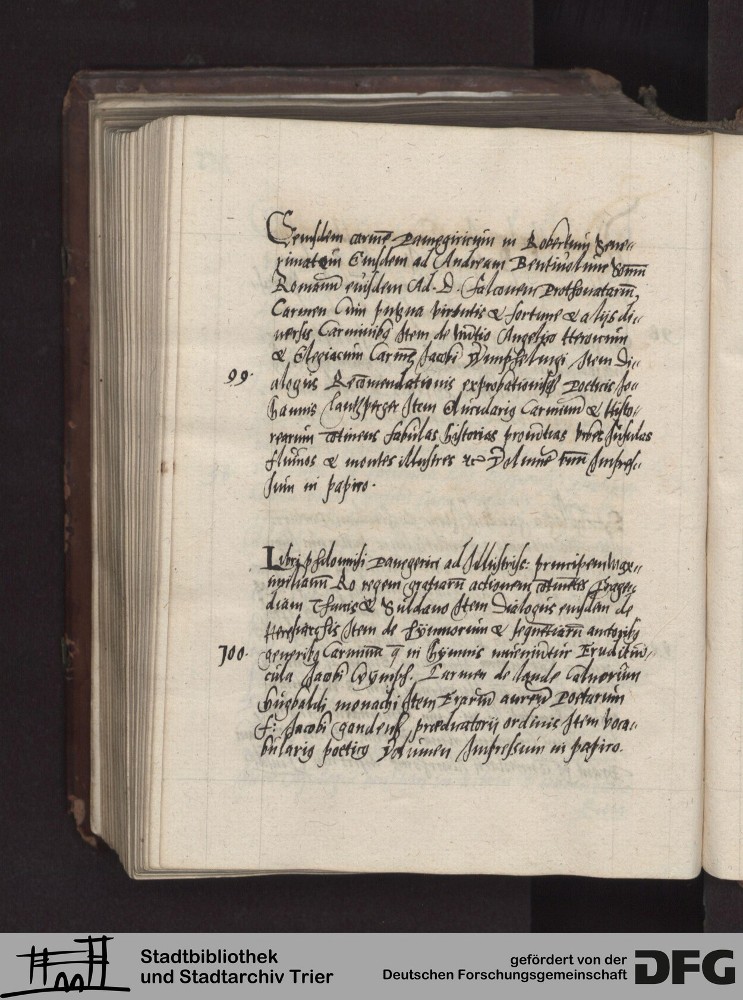 Eiusdem carmē Panegiricum in Robertum Seue-
rinatem Eiusdem ad Andream Bentiuolum
Romanū eiusdem Ad. D. Falconem Prothonatariū
Carmen Cum pugna virtutis & fortune & alijs di-
uersis Carminibꝰ Item de Angelico Heroicum
& Elegiacum Carmē Jacobi Wimphelingi Item Di-
99.
alogus Recōmendationis exprobationisqꝫ Doctoris Jo-
hannis Landtsperger Item Elucidariꝰ Carminum & Histo-
rearum cōtinens fabulas historias prouītias vrbes Insulas
fluuios & montes illustres ꝛc Volumē Impres-
sum in papiro.
Libri philomusi Panegerici ad Illustriss: principem Max-
imilianū Ro regem gratiarū actionem cōtinētes Trage-
diam Thurcis & Suldano Item Dialogus eiusdem de
Heresiarchis Item de Hymnorum & sequētiarū autoribꝰ
100.
generibꝰ Carminū q̄ in hymnis inueniūtur Eruditiū-
cula Jacobi Wymph. Carmen de laude Caluorum
hugbaldi monachi Item Erariū aureū Poetarum
F: Jacobi gandens prædicatorij ordinis Item voca-
bulariꝰ poeticꝰ Volumen Impressum in papiro.
Stadtbibliothek
und Stadtarchiv Trier
gefördert von der
Deutschen Forschungsgemeinschaft
DFG